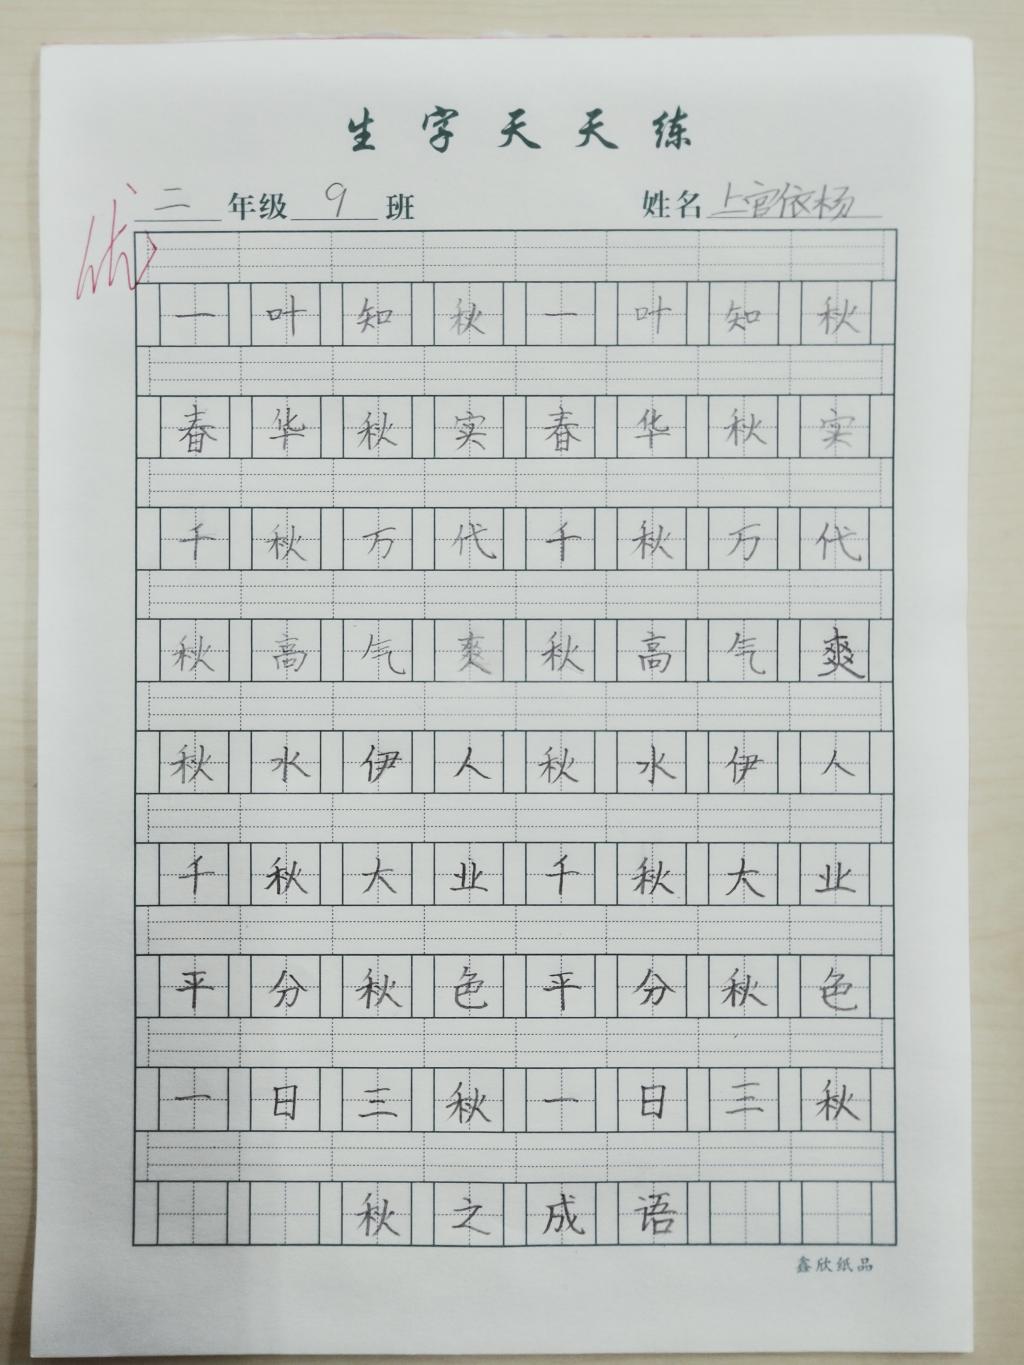 生字天天练
二年级 9 班 姓名 上官依杨
优
一叶知秋一叶知秋
春华秋实春华秋实
千秋万代千秋万代
秋高气爽秋高气爽
秋水伊人秋水伊人
千秋大业千秋大业
平分秋色平分秋色
一日三秋一日三秋
秋之成语
鑫欣纸品